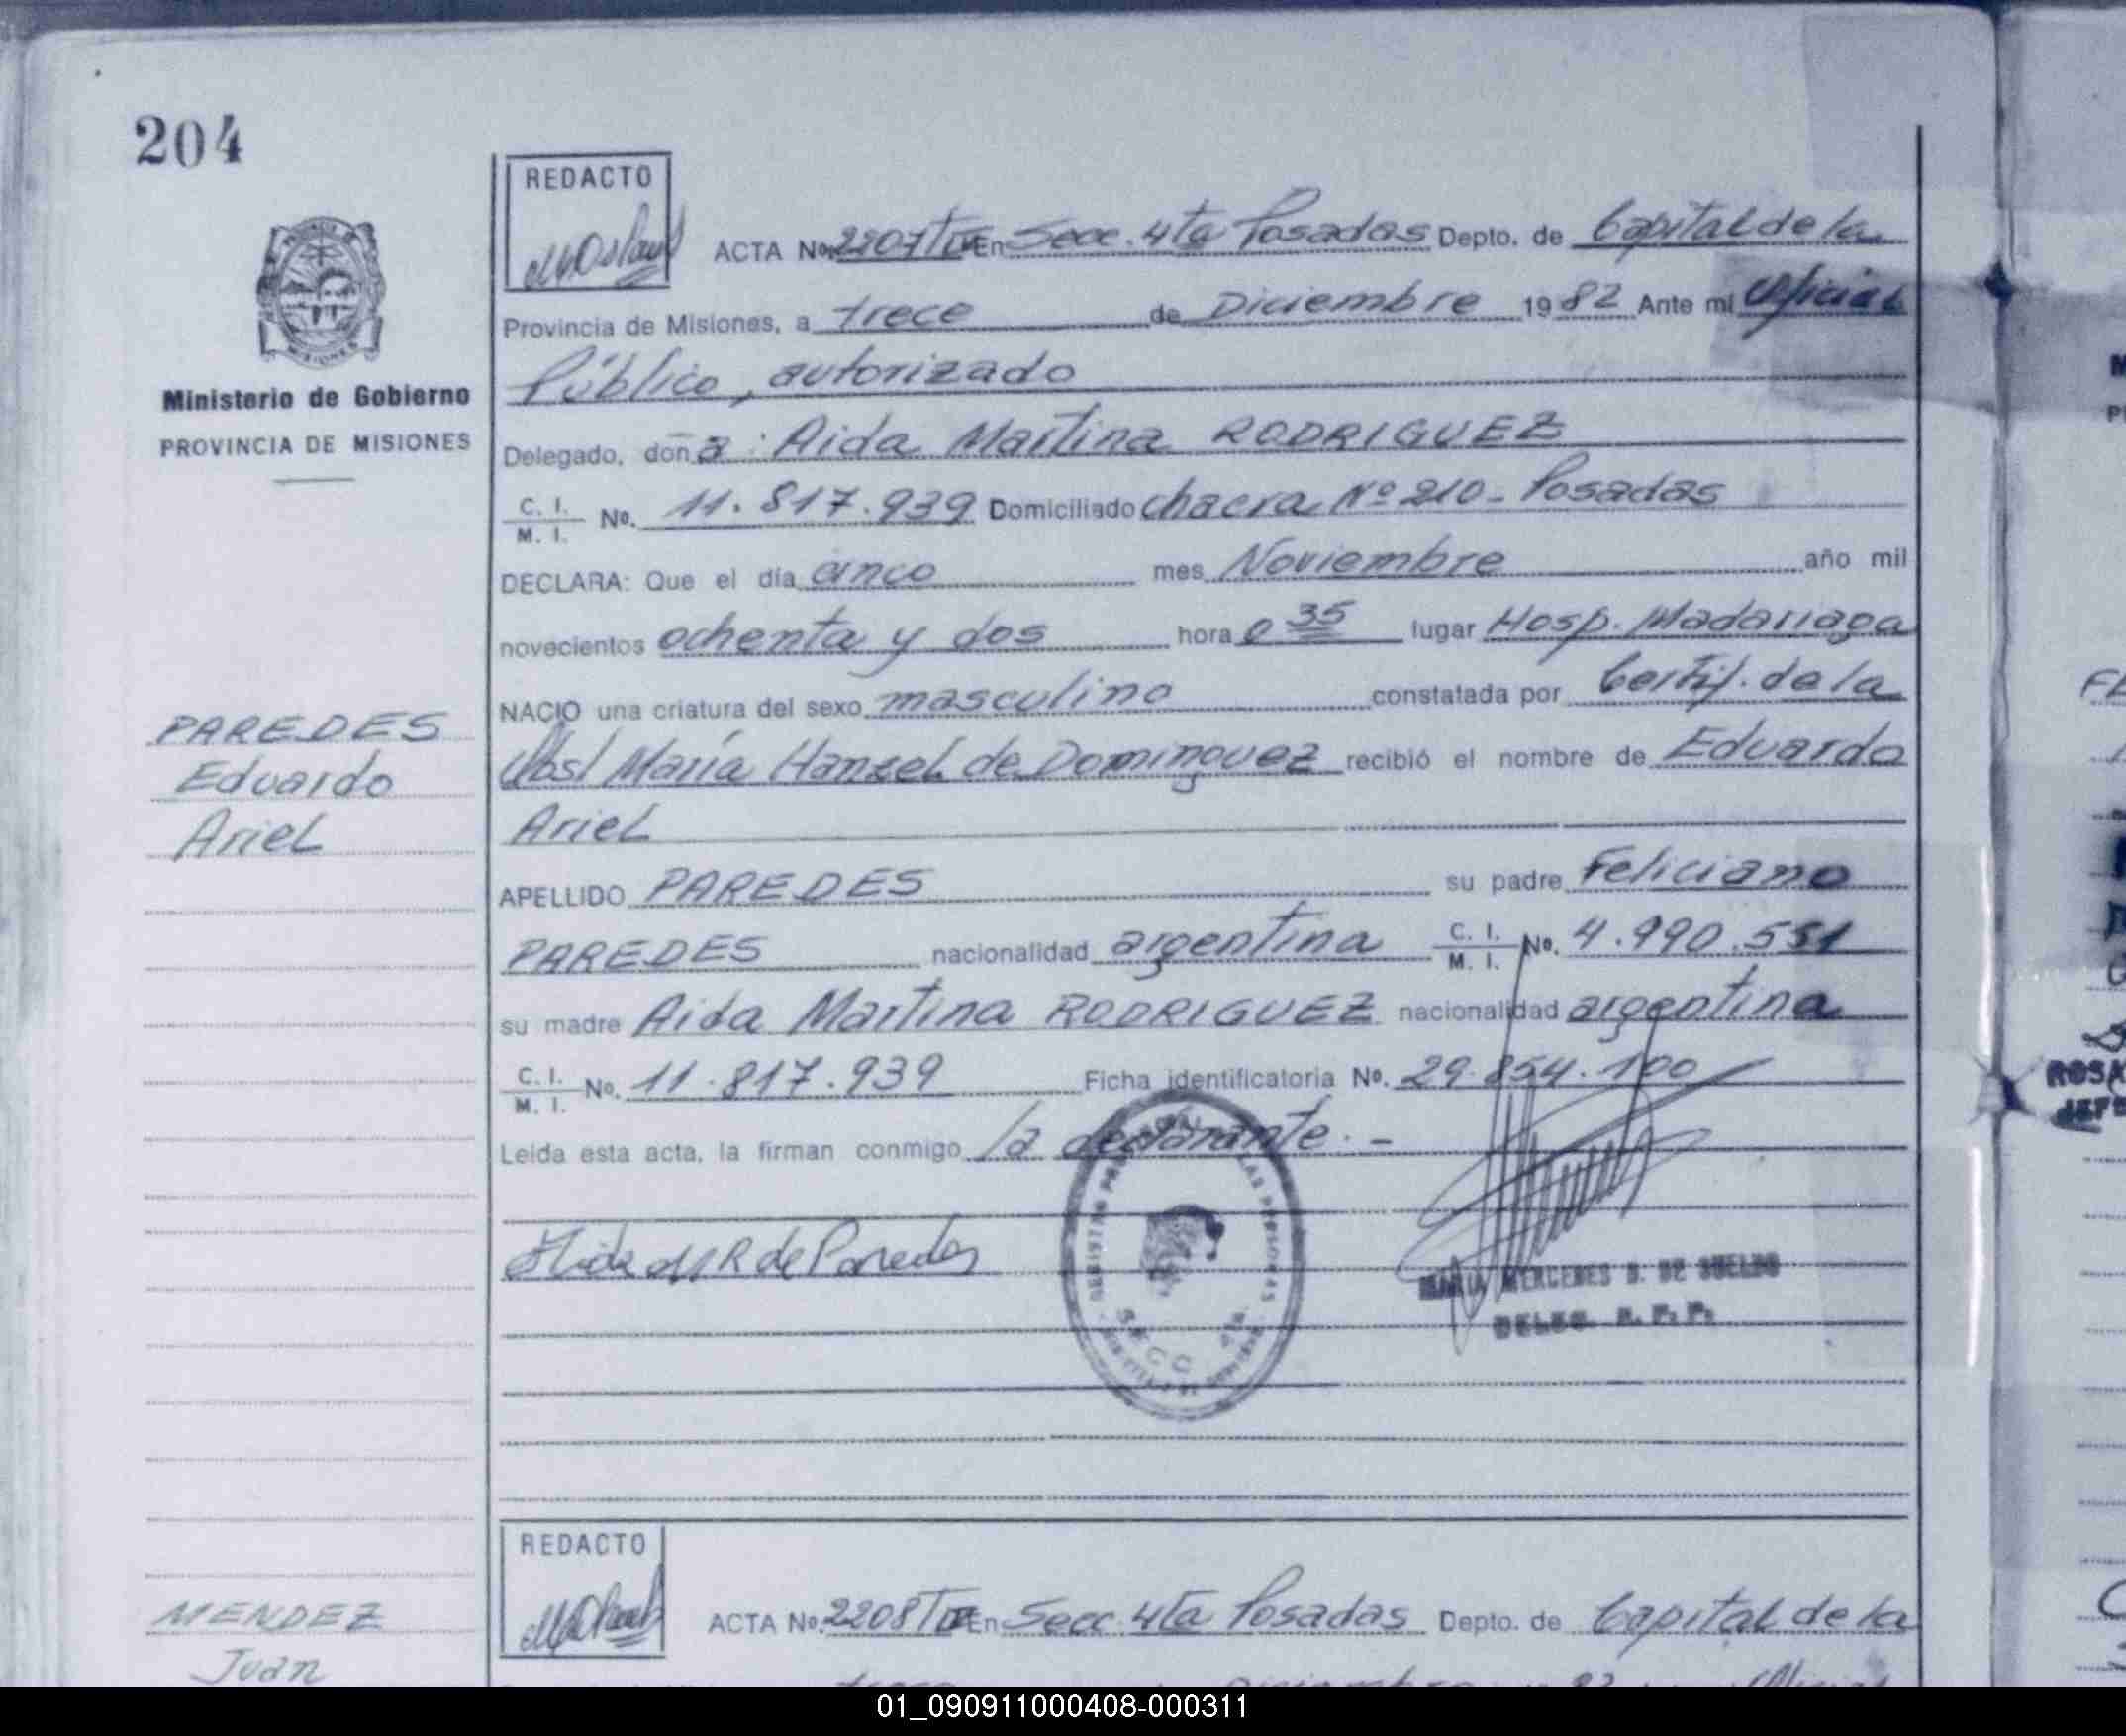 204
REDACTO
ACTA No. 2207/IV En Secc. 4ta Posadas Depto. de Capital de la
Provincia de Misiones, a trece de Diciembre 1982 Ante mi Oficial
Público, autorizado
Ministerio de Gobierno
PROVINCIA DE MISIONES
Delegado, doña: Aida Martina RODRIGUEZ
C. I. / M. I. No. 11.817.939 Domiciliado chacra Nº 210 - Posadas
DECLARA: Que el día cinco mes Noviembre año mil
novecientos ochenta y dos hora 0 35 lugar Hosp. Madariaga
NACIO una criatura del sexo masculino constatada por Certif. de la
PAREDES
Eduardo
Ariel
Obst María Hanzel de Dominguez recibió el nombre de Eduardo
Ariel
APELLIDO PAREDES su padre Feliciano
PAREDES nacionalidad argentina C. I. / M. I. No. 4.990.551
su madre Aida Martina RODRIGUEZ nacionalidad argentina
C. I. / M. I. No. 11.817.939 Ficha identificatoria No. 29.854.100
Leída esta acta, la firman conmigo la declarante. -
Aida M R de Paredes
MARIA MERCEDES D. DE SUELDO
DELEG. R. P. P.
SECC 4ta.
REDACTO
ACTA No. 2208/IV En Secc. 4ta Posadas Depto. de Capital de la
MENDEZ
Juan
trece Diciembre 82 Oficial
ROSA
JEFE
01_090911000408-000311